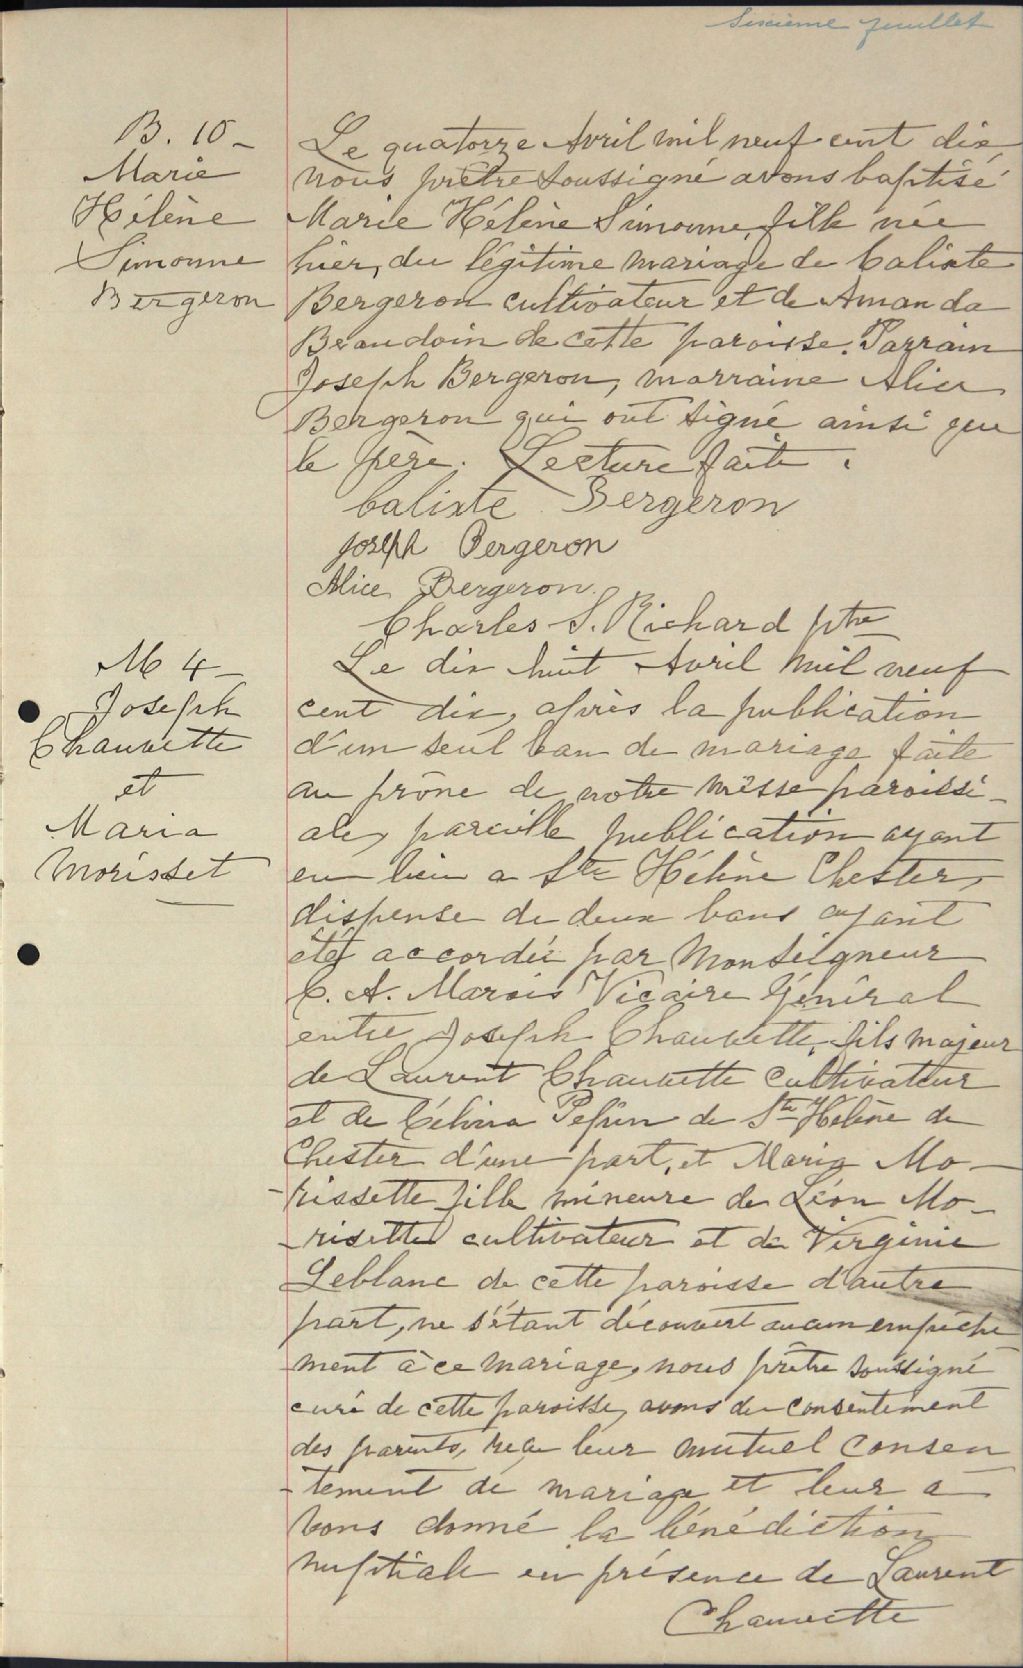 Sixième feuillet
B. 10 -
Marie
Hélène
Simonne
Bergeron
Le quatorze Avril mil neuf cent dix,
nous prêtre soussigné avons baptisé
Marie Hélène Simonne, fille née
hier, du légitime mariage de Calixte
Bergeron cultivateur et de Amanda
Beaudoin de cette paroisse. Parrain
Joseph Bergeron, marraine Alice
Bergeron qui ont signé ainsi que
le père. Lecture faite.
Calixte Bergeron
Joseph Bergeron
Alice Bergeron.
Charles S. Richard ptre
M 4 -
Joseph
Chauvette
et
Maria
Morisset
Le dix huit Avril mil neuf
cent dix, après la publication
d'un seul ban de mariage faite
au prône de notre messe paroissi-
ale, pareille publication ayant
eu lieu a Ste Hélène Chester,
dispense de deux bans ayant
été accordée par Monseigneur
C. A. Marois Vicaire Général
entre Joseph Chauvette, fils majeur
de Laurent Chauvette cultivateur
et de Célina Pépin de Ste Hélène de
Chester d'une part, et Maria Mo-
-rissette fille mineure de Léon Mo-
-risette cultivateur et de Virginie
Leblanc de cette paroisse d'autre
part, ne s'étant découvert aucun empêche
ment à ce mariage, nous prêtre soussigné
curé de cette paroisse, avons du consentement
des parents, reçu leur mutuel consen
-tement de mariage et leur a-
vons donné la bénédiction
nuptiale en présence de Laurent
Chauvette